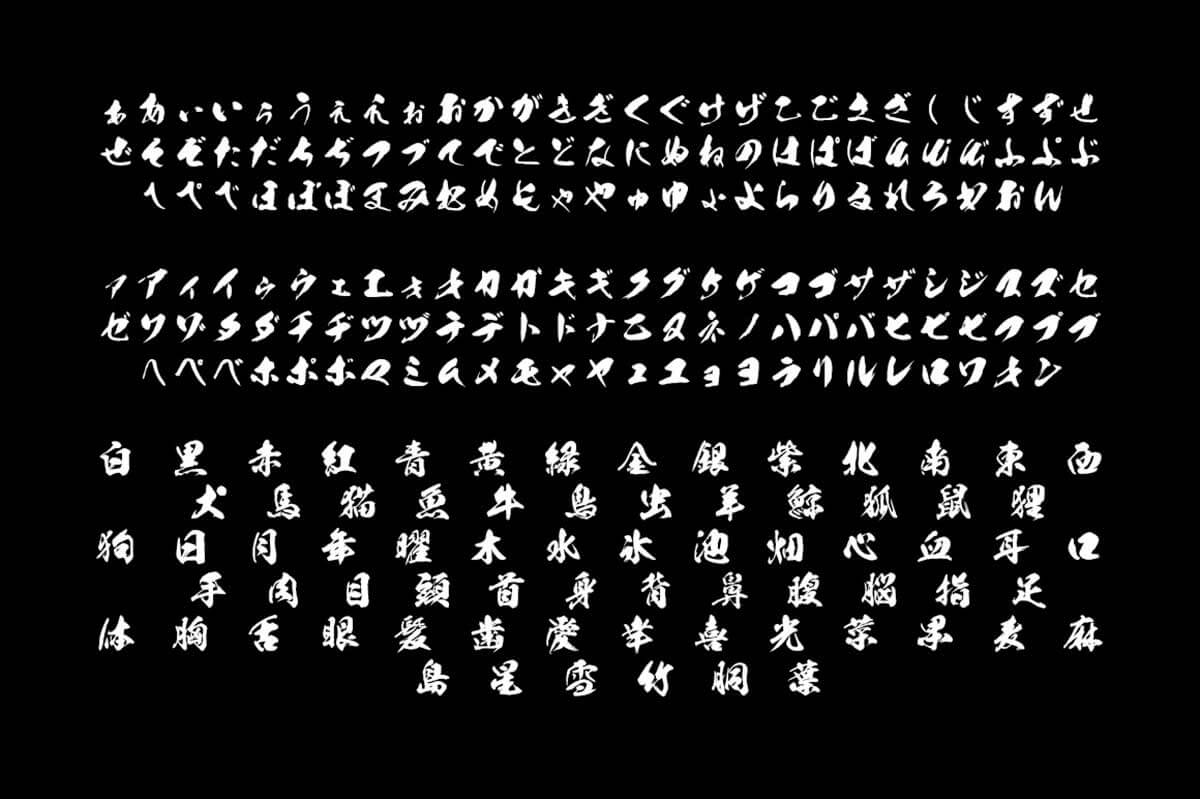 ぁあぃいぅうぇえぉおかがきぎくぐけげこごさざしじすずせ
ぜそぞただちぢつづてでとどなにぬねのはぱばひぴびふぷぶ
へぺべほぽぼまみむめもゃやゅゆょよらりるれろわをん
ァアィイゥウェエォオカガキギクグケゲコゴサザシジスズセ
ゼソゾタダチヂツヅテデトドナニヌネノハパバヒピビフプブ
ヘペベホポボマミムメモャヤュユョヨラリルレロワヲン
白 黒 赤 紅 青 黄 緑 金 銀 紫 北 南 東 西
犬 馬 猫 魚 牛 鳥 虫 羊 鯨 狐 鼠 狸
狗 日 月 年 曜 木 水 氷 池 畑 心 血 耳 口
手 肉 目 頭 首 身 背 鼻 腹 脳 指 足
体 胸 舌 眼 髪 歯 愛 幸 喜 光 茶 果 麦 麻
島 星 雪 竹 胴 葉